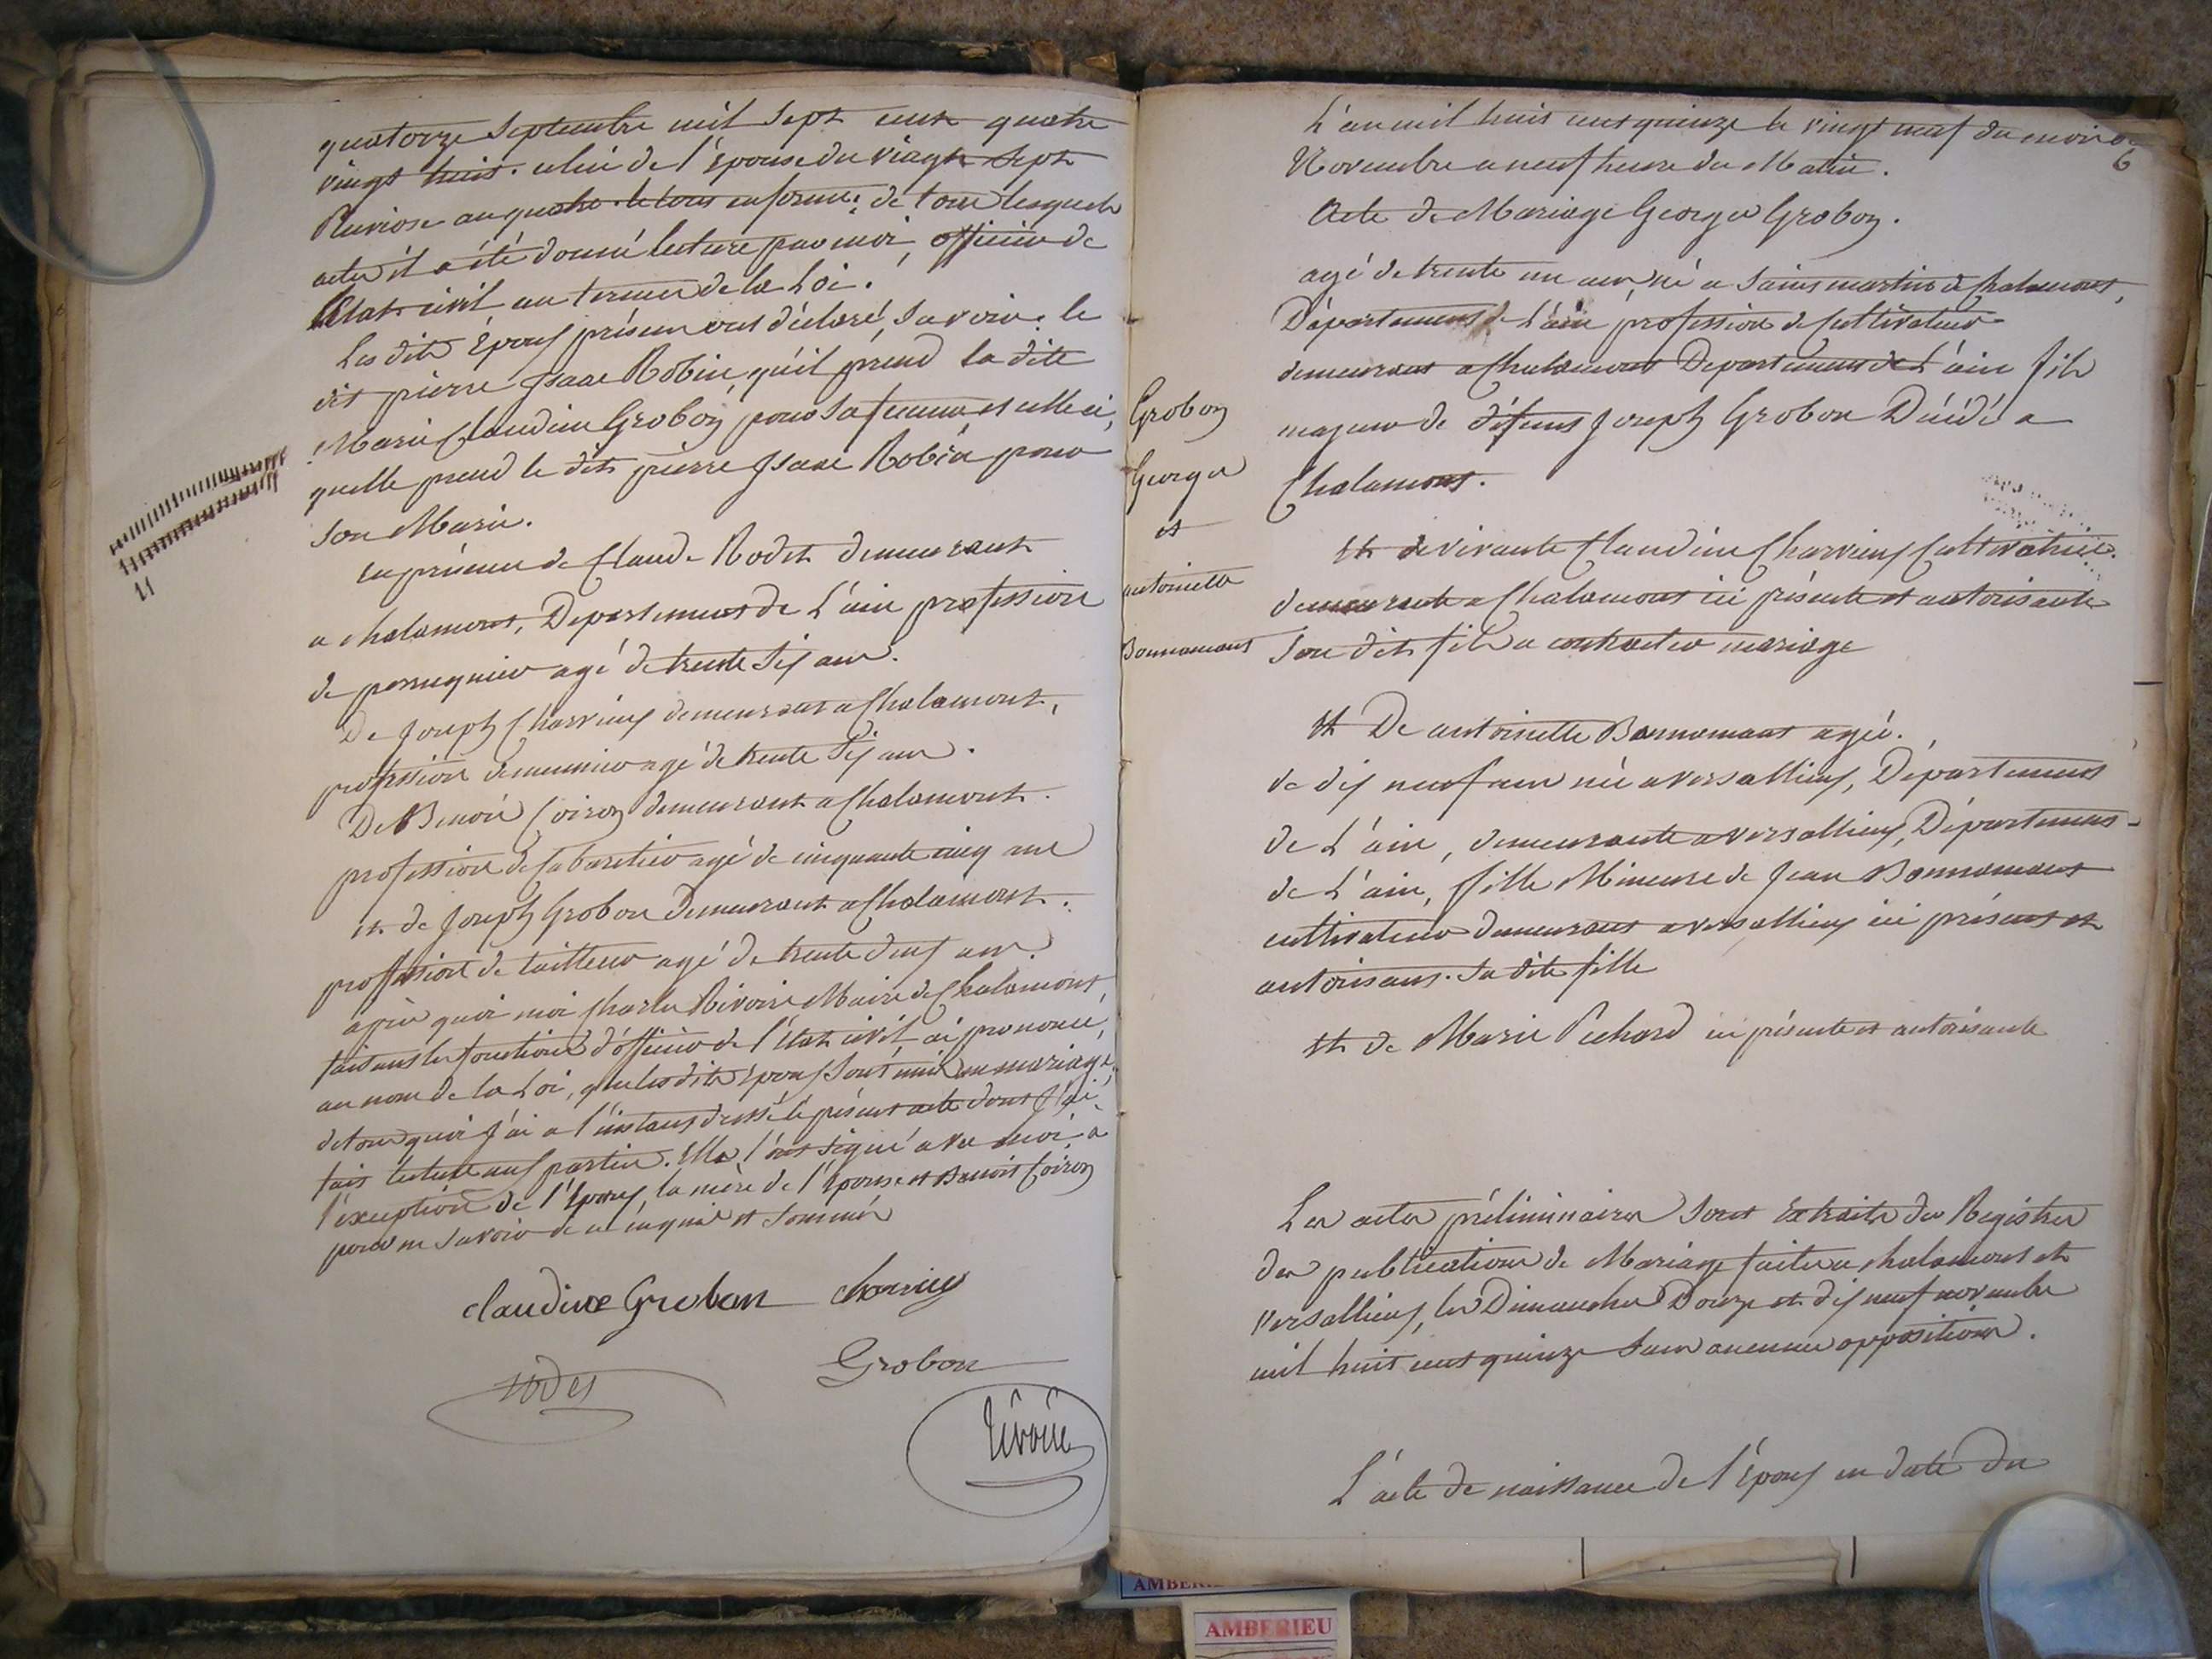 quatorze Septembre mil Sept cent quatre
vingt huit. celui de l'Epouse du vingt Sept
Pluviose an quatre. le tous en forme: de tous lesquels
actes il a été donné lecture par moi, officier de
l'Etat civil, au termes de la Loi.
Les dits Epoux présens ont déclaré, Savoir: le
dit pierre Isaac Robin, qu'il prend la dite
Marie Claudine Grobon pour Sa femme, et celle ci,
quelle prend le dit pierre Isaac Robin pour
Son Marie.
en présence de Claude Rodet demeurant
a chalamont, Departement de L'ain profession
de perruquier agé de trente Six ans.
De Joseph Charvieux demeurant a Chalamont,
profession de meunier agé de trente Six ans.
De Benoit Coiron demeurant a Chalamont.
profession de Cabaretier agé de cinquante cinq ans
et de Joseph Grobon demeurant a Chalamont.
proffession de tailleur agé de trente deux ans.
après quoi moi Charles Rivoire Maire de Chalamont,
faisant les fonctions d'officier de l'état civil, ai prononcé,
au nom de la Loi, que les dits Epoux Sont unis en mariage,
de tous quoi J'ai a l'instant dressé le présent acte dont J'ai
fait lecture aux parties. Elles l'ont Signé avec moi, a
l'exception de l'Epoux, la mère de l'Epouse et Benoit Coiron
pour ne Savoir de ce enquis et Sommés
claudine Grobon charvieu
rodet
Grobon
Rivoire
L'an mil huit cent quinze le vingt neuf du mois de
6
Novembre a neuf heure du Matin.
Acte de Mariage George Grobon.
agé de trente un ans, né a Saint martin de Chalamont,
Département de L'ain profession de Cultivateur
demeurant a Chalamont Departement de L'ain fils
majeur de défunt Joseph Grobon Décédé a
Chalamont.
Grobon
George
et
antoinette
Bonnamant
Et de vivante Claudine Charvieux Cultivatrice.
demeurante a Chalamont ici présente et autorisante
Son dit fils a contracter mariage
Et De antoinette Bonnamant agée.
de dix neuf ans née a versallieux, Département
de L'ain, demeurante a versallieux, Département
de L'ain, fille Mineure de Jean Bonnamant
cultivateur demeurant a versallieux ici présent et
autorisant. Sa dite fille
Et de Marie Pechard ici présente et autorisante
Les actes préliminaires Sont Extraits des Registres
des publications de Mariage faites a chalamont et
versallieux, les Dimanches Douze et dix neuf novembre
mil huit cent quinze Sans aucune opposition.
L'acte de naissance de l'Epoux en date du
AMBERIEU